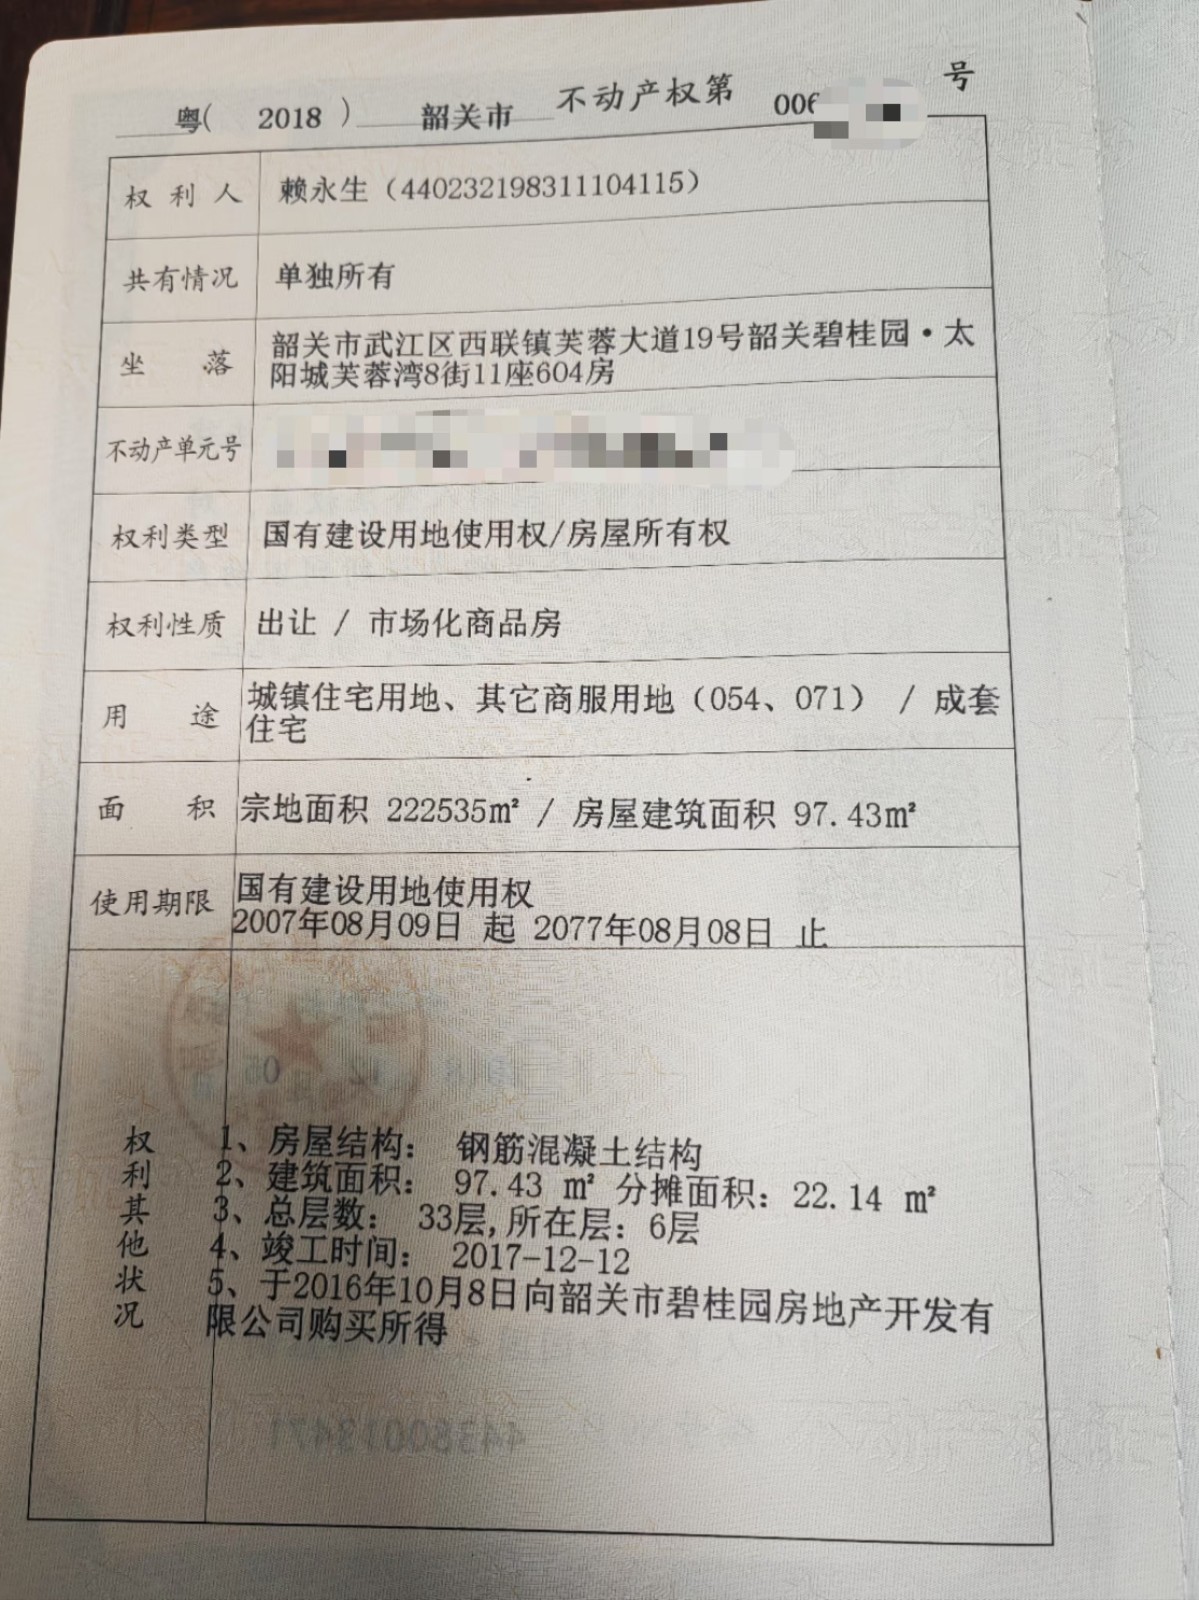 粤( 2018 ) 韶关市 不动产权第 006 号
权利人 赖永生（440232198311104115）
共有情况 单独所有
坐落 韶关市武江区西联镇芙蓉大道19号韶关碧桂园·太
阳城芙蓉湾8街11座604房
不动产单元号
权利类型 国有建设用地使用权/房屋所有权
权利性质 出让 / 市场化商品房
用途 城镇住宅用地、其它商服用地（054、071） / 成套
住宅
面积 宗地面积 222535㎡ / 房屋建筑面积 97.43㎡
使用期限 国有建设用地使用权
2007年08月09日 起 2077年08月08日 止
权利其他状况
1、房屋结构： 钢筋混凝土结构
2、建筑面积： 97.43 ㎡ 分摊面积：22.14 ㎡
3、总层数： 33层,所在层：6层
4、竣工时间： 2017-12-12
5、于2016年10月8日向韶关市碧桂园房地产开发有
限公司购买所得